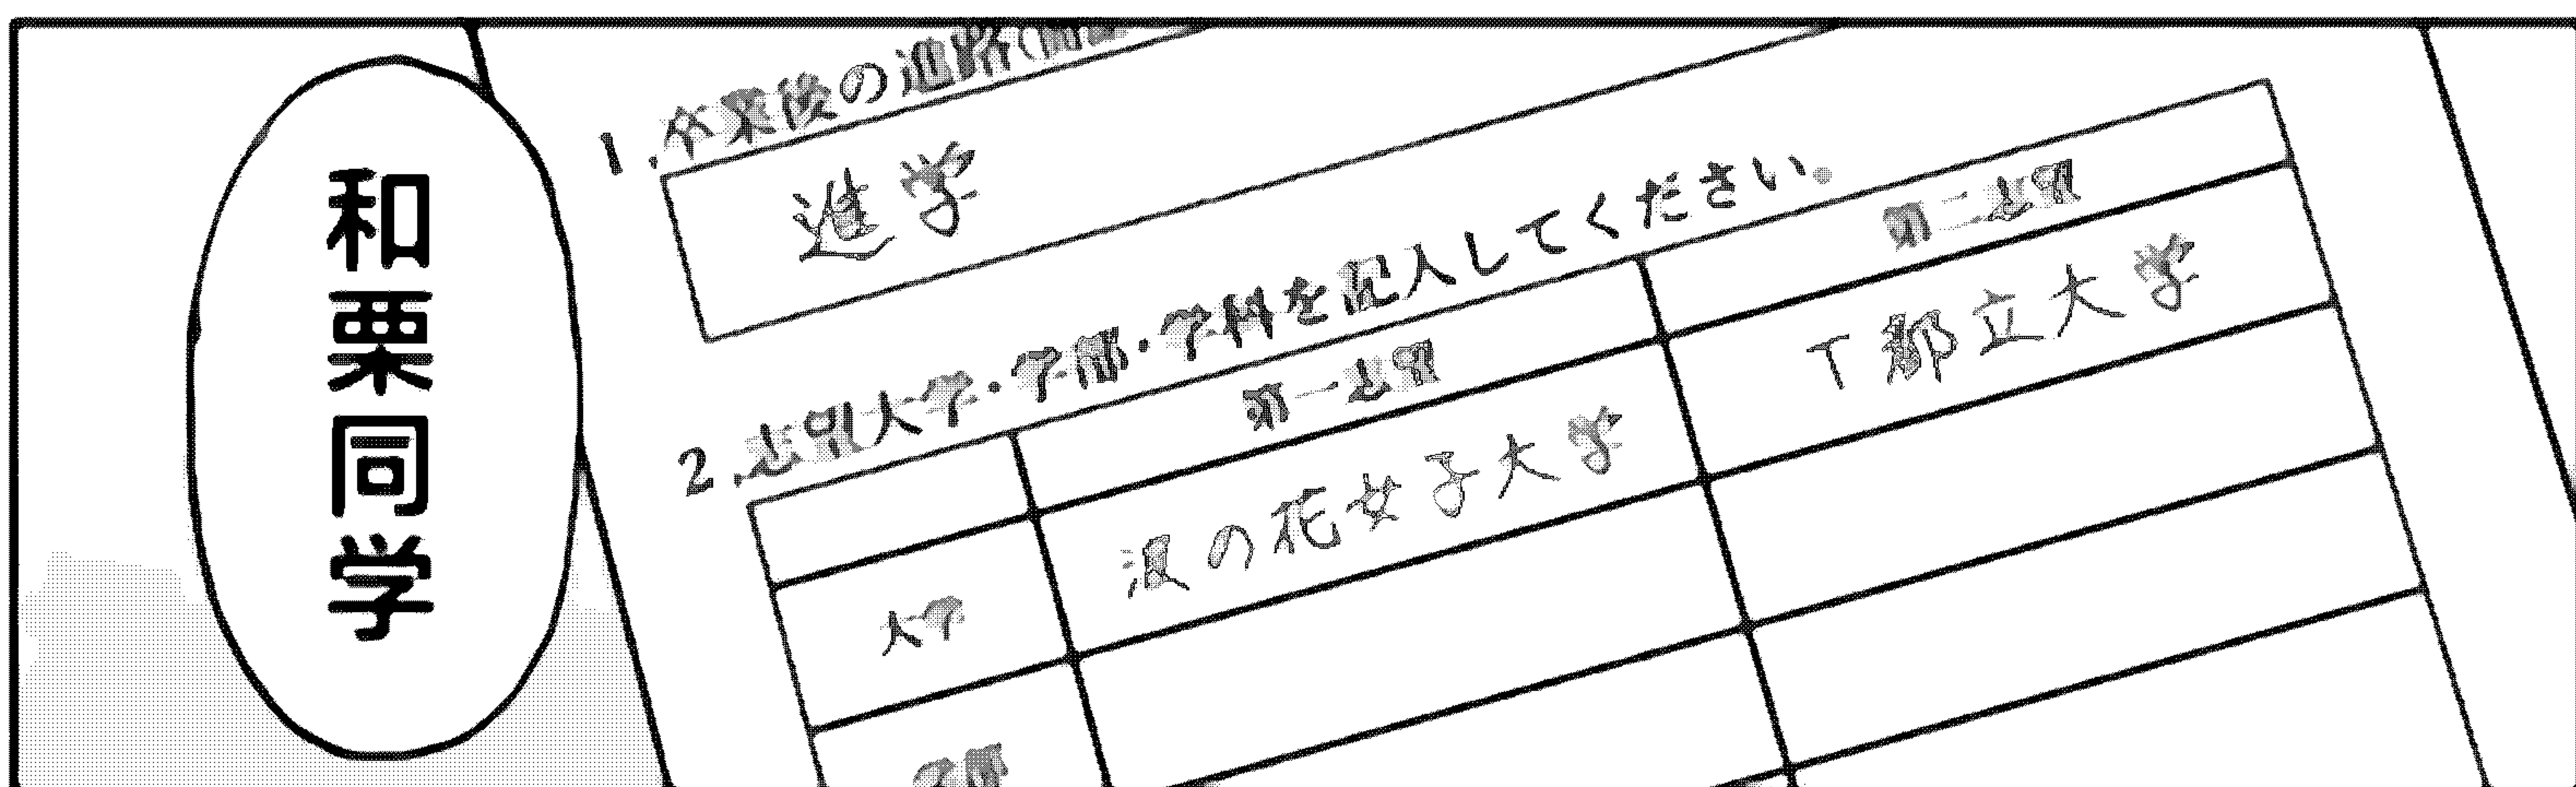 和栗同学
1.卒業後の進路
進学
2.志望大学・学部・学科を記入してください。
第一志望
第二志望
大学
浪の花女子大学
T都立大学
学部